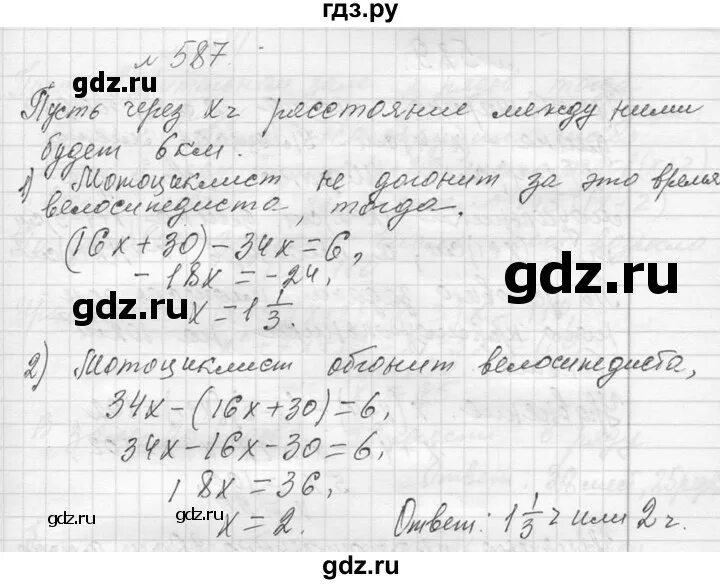 гдз.ру
№ 587.
gdz.ru gdz.ru
Пусть через x ч расстояние между ними
будет 6 км.
1) Мотоциклист не догонит за это время
велосипедиста, тогда.
(16x + 30) - 34x = 6,
gdz.ru
- 18x = - 24,
gdz.ru
x = 1 1/3.
2) Мотоциклист обгонит велосипедиста,
34x - (16x + 30) = 6,
34x - 16x - 30 = 6,
18x = 36,
gdz.ru gdz.ru
x = 2. Ответ: 1 1/3 ч или 2 ч.
gdz.ru